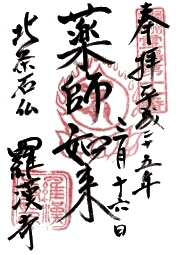 奉拝
平成二十五年
二月十六日
薬師如来
北条石仏
羅漢寺